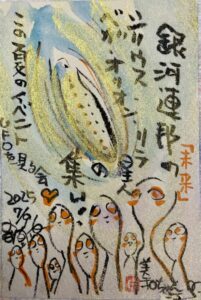 銀河連邦の「未来」
シリウス
ベガ オリオン リラ
の星人
の集い!
この夏のイベント
UFOを見る会
2025
7/9